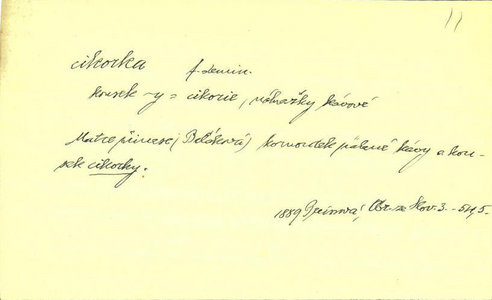 11
cikorka f. demin.
kousek ~y = cikorie, náhražky kávové
Matce přinese (Beláková) kornoutek pálené kávy a kou-
sek cikorky.
1889 Preissová, Obr. ze Slov. 3. - 54, 5.